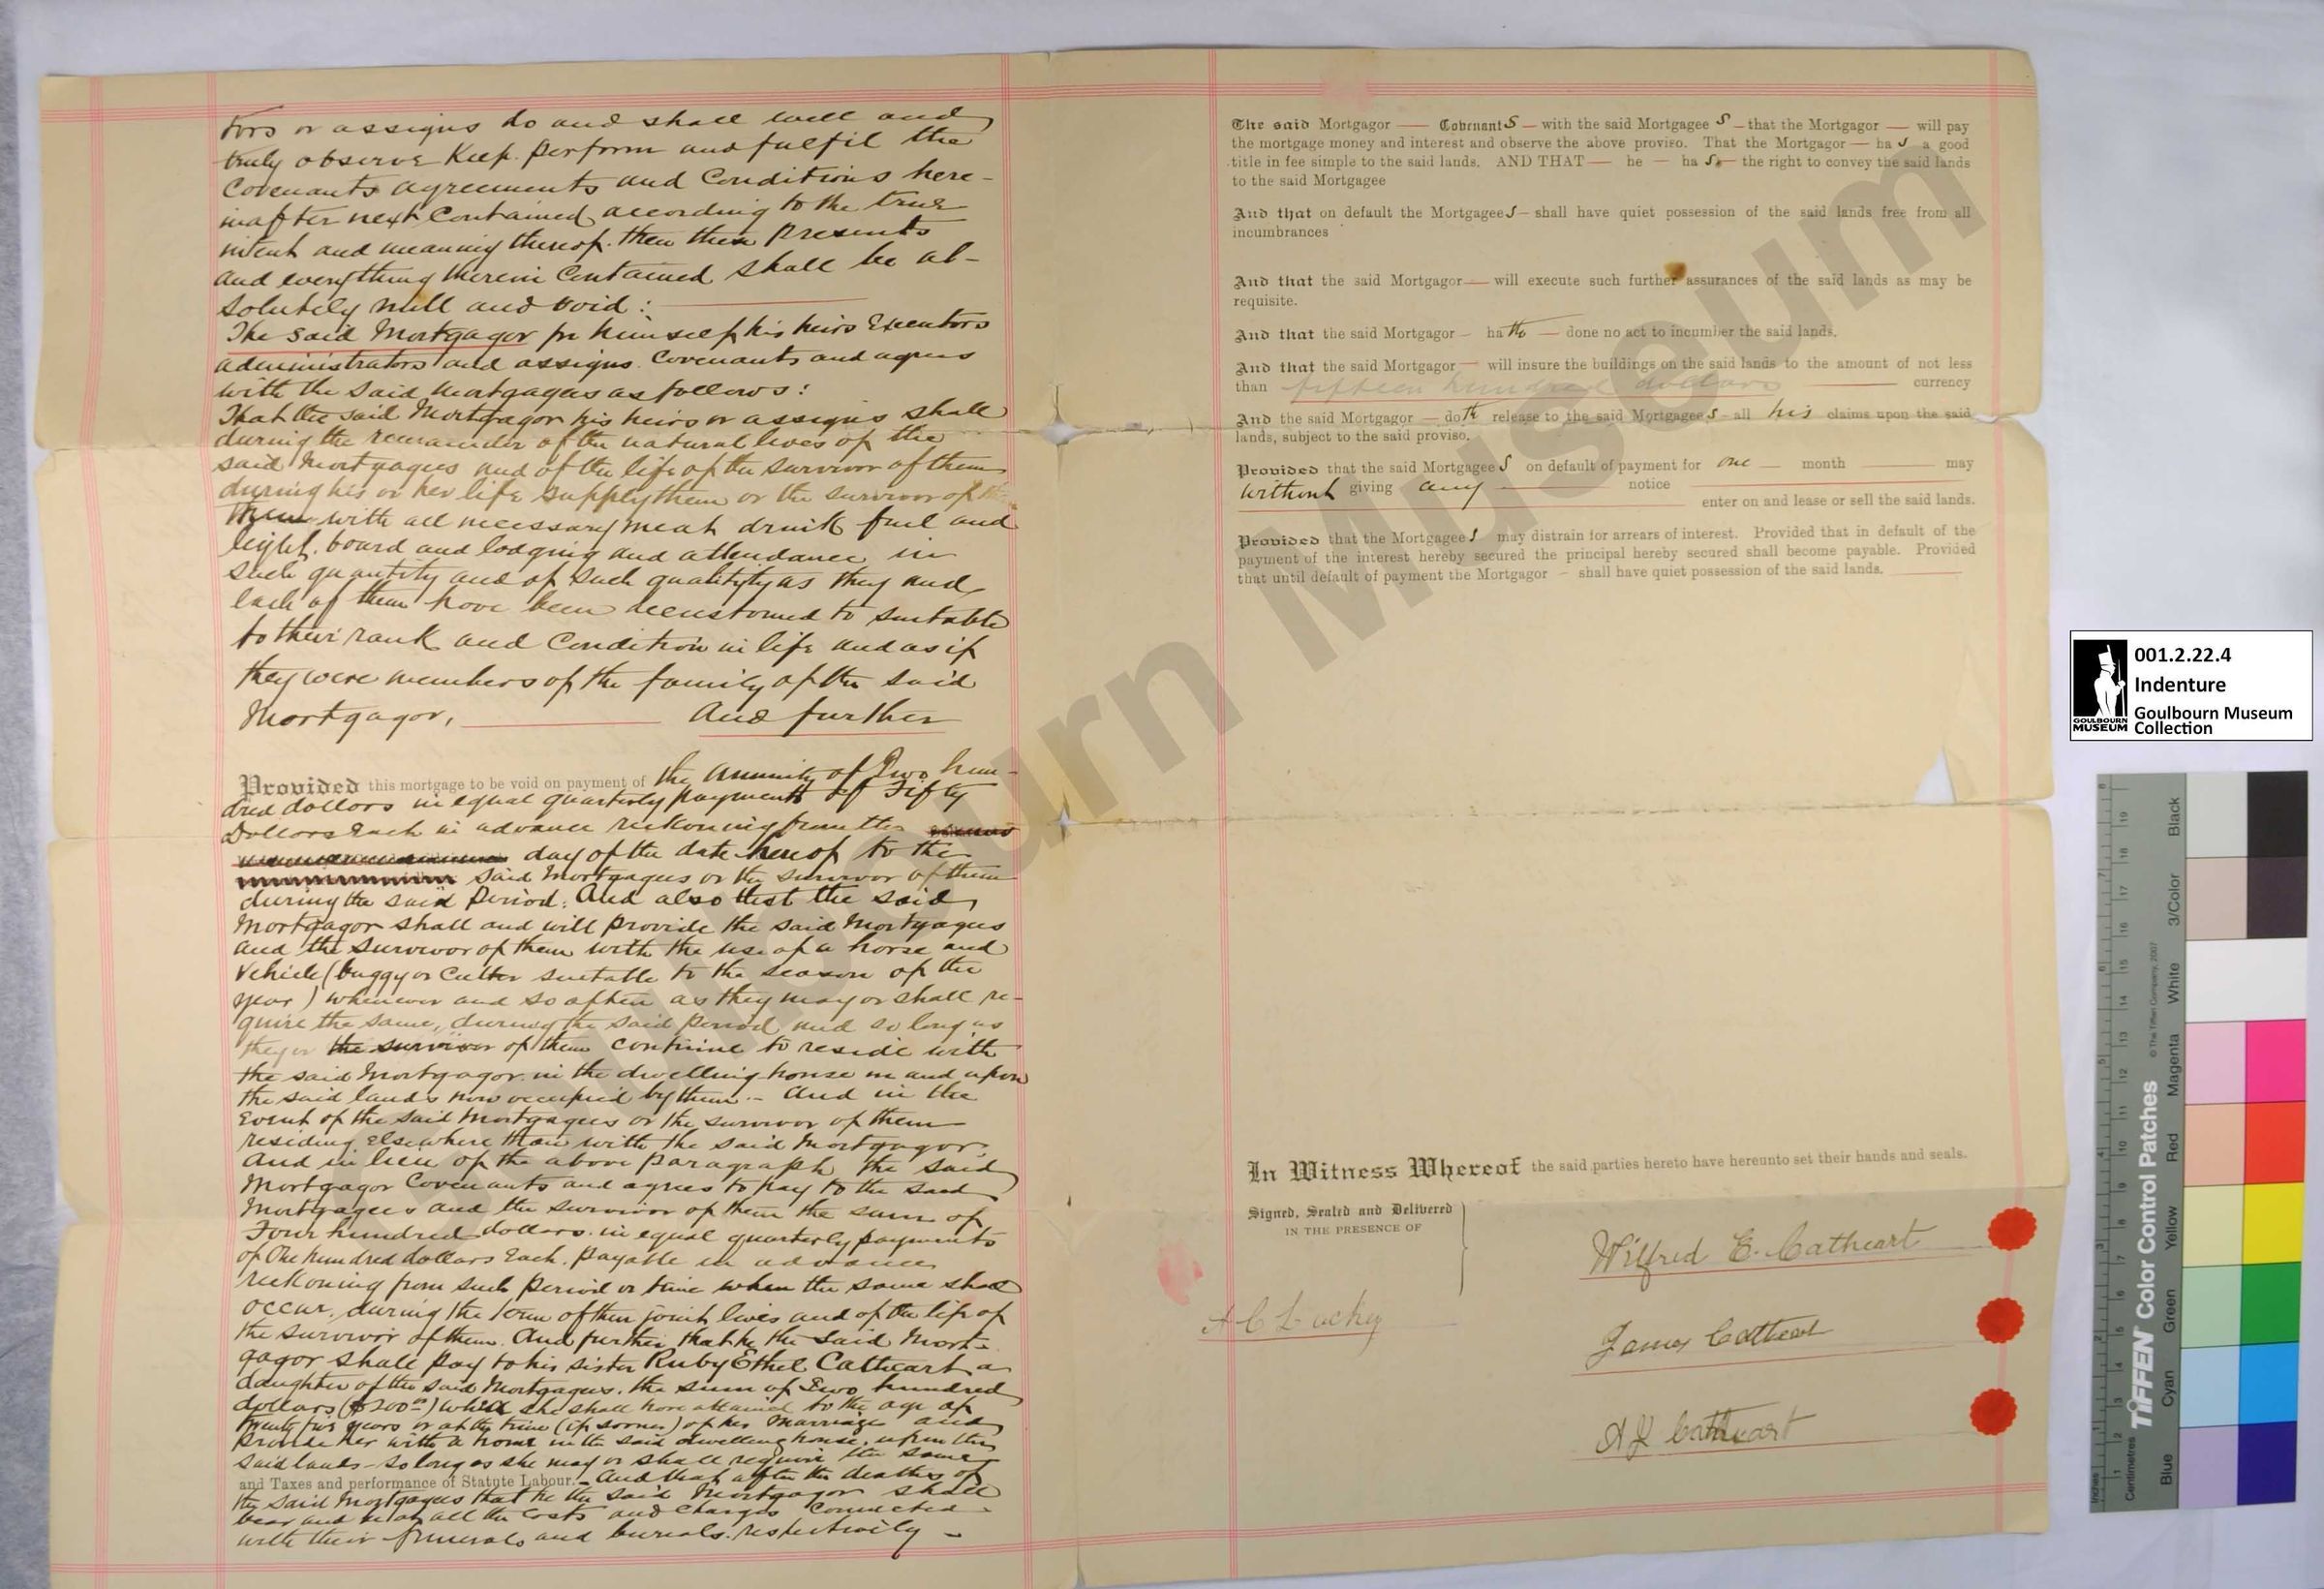 tors or assigns do and shall well and
truly observe Keep perform and fulfil the
Covenants agreements and Conditions here-
inafter next Contained according to the true
intent and meaning thereof. then these Presents
and everything therein Contained shall be ab-
solutely null and void:
The said Mortgagor for himself his heirs Executors
administrators and assigns Covenants and agrees
with the said Mortgagees as follows:
That the said Mortgagor his heirs or assigns shall
during the remainder of the natural lives of the
said Mortgagees and of the life of the survivor of them
during his or her life supply them or the survivor of
them with all necessary meat drink fuel and
light. board and lodging and attendance in
such quantity and of such quality as they and
each of them have been accustomed to suitable
to their rank and Condition in life and as if
they were members of the family of the said
Mortgagor, And further
Provided this mortgage to be void on payment of the annuity of Two hun-
dred dollars in equal quarterly payments of Fifty
Dollars Each in advance reckoning from the
day of the date hereof to the
said Mortgagees or the survivor of them
during the said Period: And also that the said
Mortgagor shall and will provide the said Mortgagees
and the survivor of them with the use of a horse and
Vehicle (buggy or Cutter suitable to the season of the
year) whenever and so often as they may or shall re-
quire the same, during the said period and so long as
they or the survivor of them continue to reside with
the said Mortgagor in the dwelling house in and upon
the said lands now occupied by them.- And in the
Event of the said Mortgagees or the survivor of them
residing elsewhere than with the said Mortgagor,
And in lieu of the above paragraph the said
Mortgagor Covenants and agrees to pay to the said
Mortgagees and the survivor of them the sum of
Four hundred dollars. in equal quarterly payments
of One hundred dollars Each. payable in advance
reckoning from such period or time when the same shall
occur, during the term of their joint lives and of the life of
the survivor of them. And further that he the said Mort-
gagor shall pay to his sister Ruby Ethel Cathcart a
daughter of the said Mortgagees, the sum of Two hundred
dollars ($200.00) when she shall have attained to the age of
Twenty five years or at the time (if sooner) of her Marriage and
provide her with a home in the said dwelling house, upon the
said lands - so long as she may or shall require the same
and Taxes and performance of Statute Labour.- And that after the deaths of
the said Mortgagees that he the said Mortgagor shall
bear and all the Costs and Charges Connected
with their funerals and burials. respectively -
The said Mortgagor — Covenant S — with the said Mortgagee S — that the Mortgagor — will pay
the mortgage money and interest and observe the above proviso. That the Mortgagor — ha s a good
title in fee simple to the said lands. AND THAT — he — ha s — the right to convey the said lands
to the said Mortgagee
And that on default the Mortgagee s — shall have quiet possession of the said lands free from all
incumbrances
And that the said Mortgagor — will execute such further assurances of the said lands as may be
requisite.
And that the said Mortgagor — ha th — done no act to incumber the said lands.
And that the said Mortgagor — will insure the buildings on the said lands to the amount of not less
than fifteen hundred dollars currency
And the said Mortgagor — do th release to the said Mortgagee s — all his claims upon the said
lands, subject to the said proviso.
Provided that the said Mortgagee s on default of payment for one — month may
without giving any notice
enter on and lease or sell the said lands.
Provided that the Mortgagee s may distrain for arrears of interest. Provided that in default of the
payment of the interest hereby secured the principal hereby secured shall become payable. Provided
that until default of payment the Mortgagor — shall have quiet possession of the said lands.
In Witness Whereof the said parties hereto have hereunto set their hands and seals.
Signed, Sealed and Delivered
IN THE PRESENCE OF
Wilfred E. Cathcart
A C Lucky
James Cathcart
A J Cathcart
Goulbourn Museum
001.2.22.4
Indenture
Goulbourn Museum
Collection
GOULBOURN
MUSEUM
TIFFEN Color Control Patches
© The Tiffen Company, 2007
Centimetres
Inches
Blue
Cyan
Green
Yellow
Red
Magenta
White
3/Color
Black